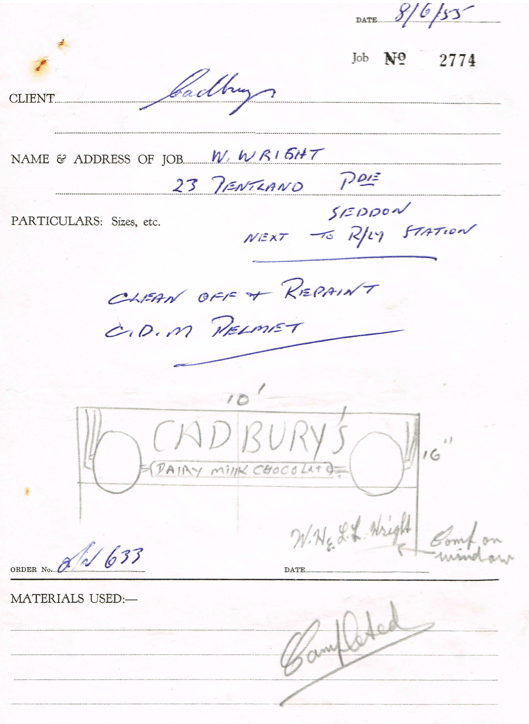 DATE 8/6/55
Job No 2774
CLIENT Cadburys
NAME & ADDRESS OF JOB W. WRIGHT
23 PENTLAND PDE
PARTICULARS: Sizes, etc. SEDDON
NEXT TO R/LY STATION
CLEAN OFF & REPAINT
C.D.M PELMET
10'
CADBURY'S
16"
DAIRY MILK CHOCOLATE
W. H & L. L. Wright
Comp on
window
ORDER No. 633 DATE
MATERIALS USED:—
Completed